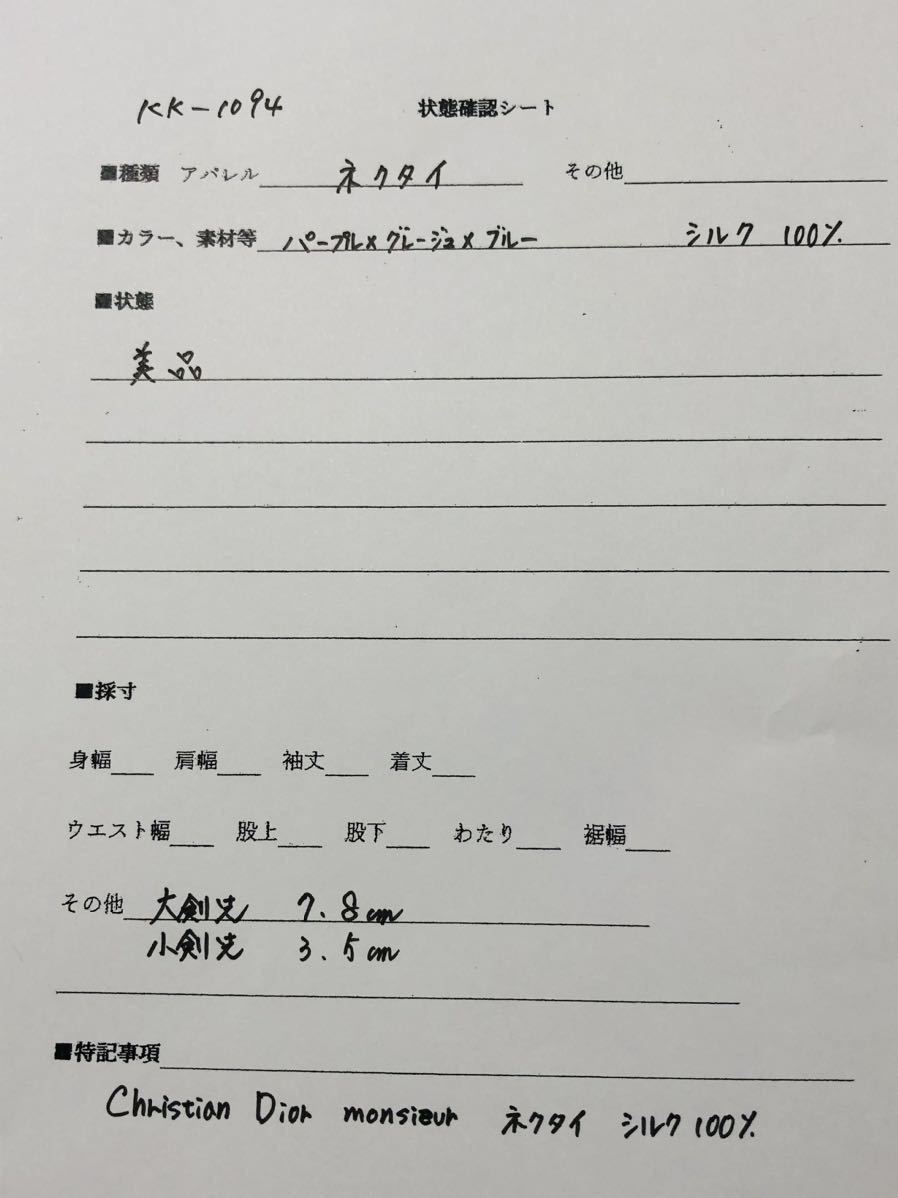 KK-1094 状態確認シート
■種類 アパレル ネクタイ その他
■カラー、素材等 パープル×グレージュ×ブルー シルク 100%
■状態
美品
■採寸
身幅 肩幅 袖丈 着丈
ウエスト幅 股上 股下 わたり 裾幅
その他 大剣先 7.8cm
小剣先 3.5cm
■特記事項
Christian Dior monsieur ネクタイ シルク100%